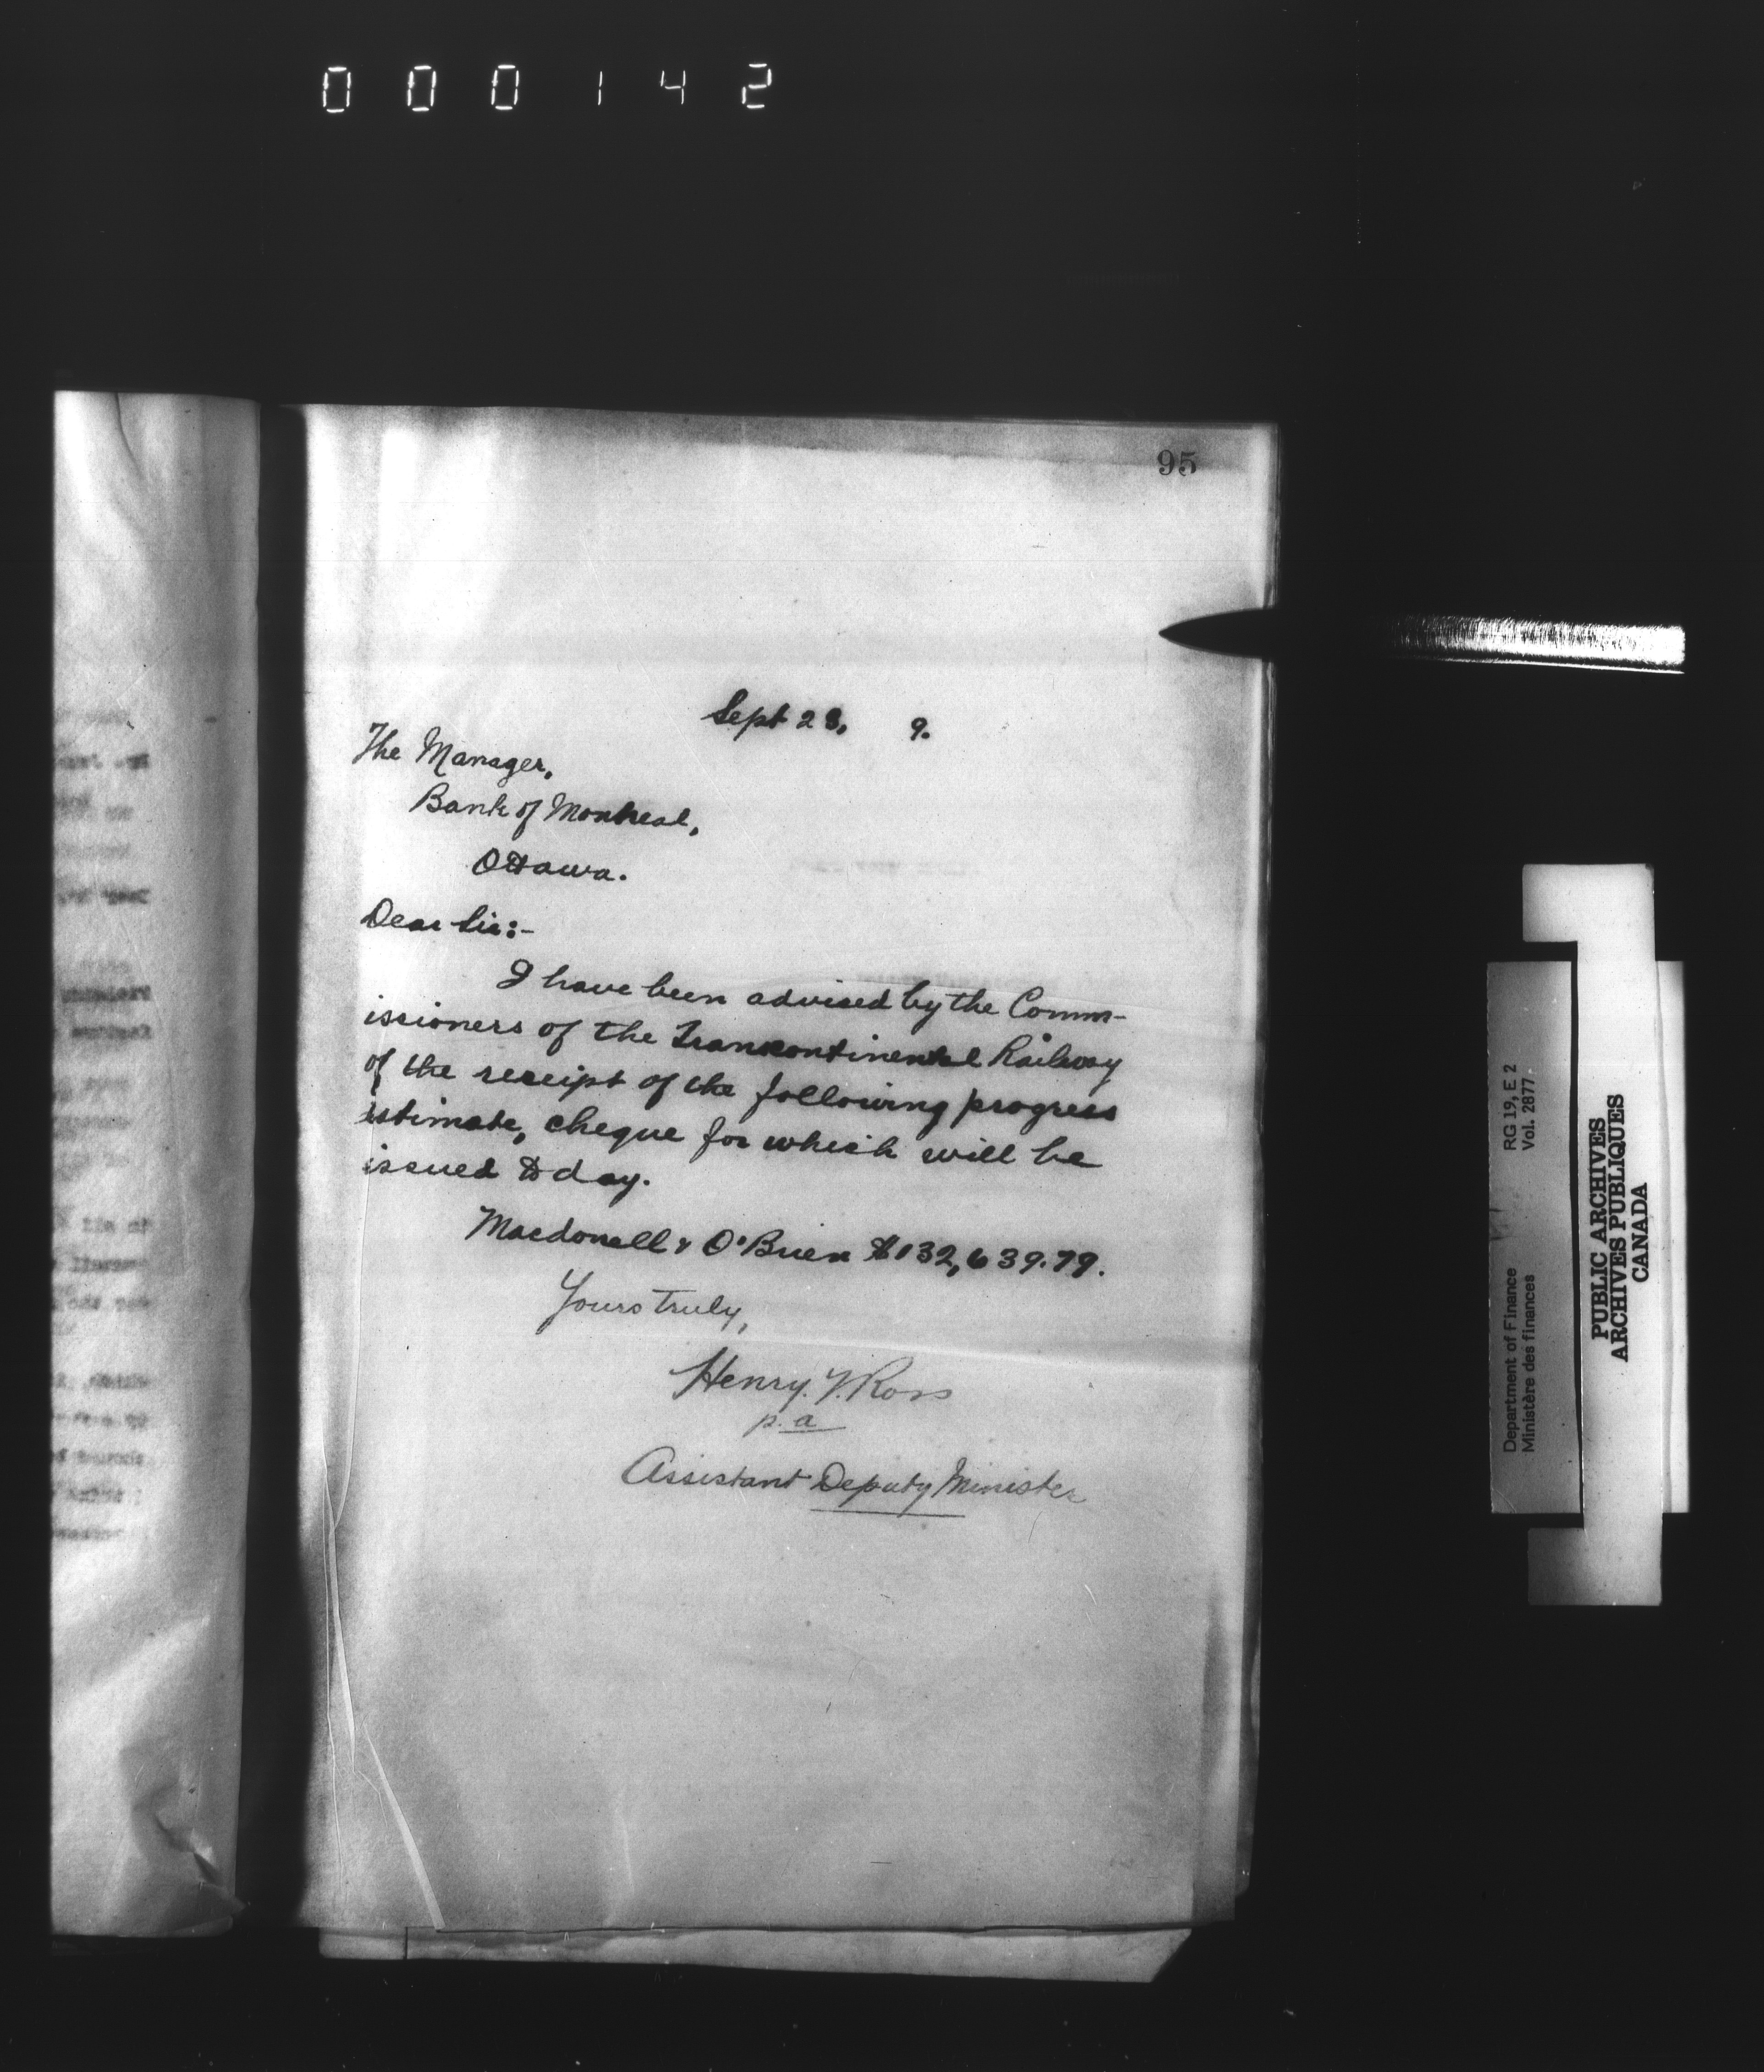 000142
95
Sept 28, 9.
The Manager,
Bank of Montreal,
Ottawa.
Dear Sir:-
I have been advised by the Comm-
issioners of the Transcontinental Railway
of the receipt of the following progress
estimate, cheque for which will be
issued today.
Macdonell & O'Brien $132,639.79.
Yours truly,
Henry T. Ross
p.a
Assistant Deputy Minister
Department of Finance RG 19, E 2
Ministère des finances Vol. 2877
PUBLIC ARCHIVES
ARCHIVES PUBLIQUES
CANADA